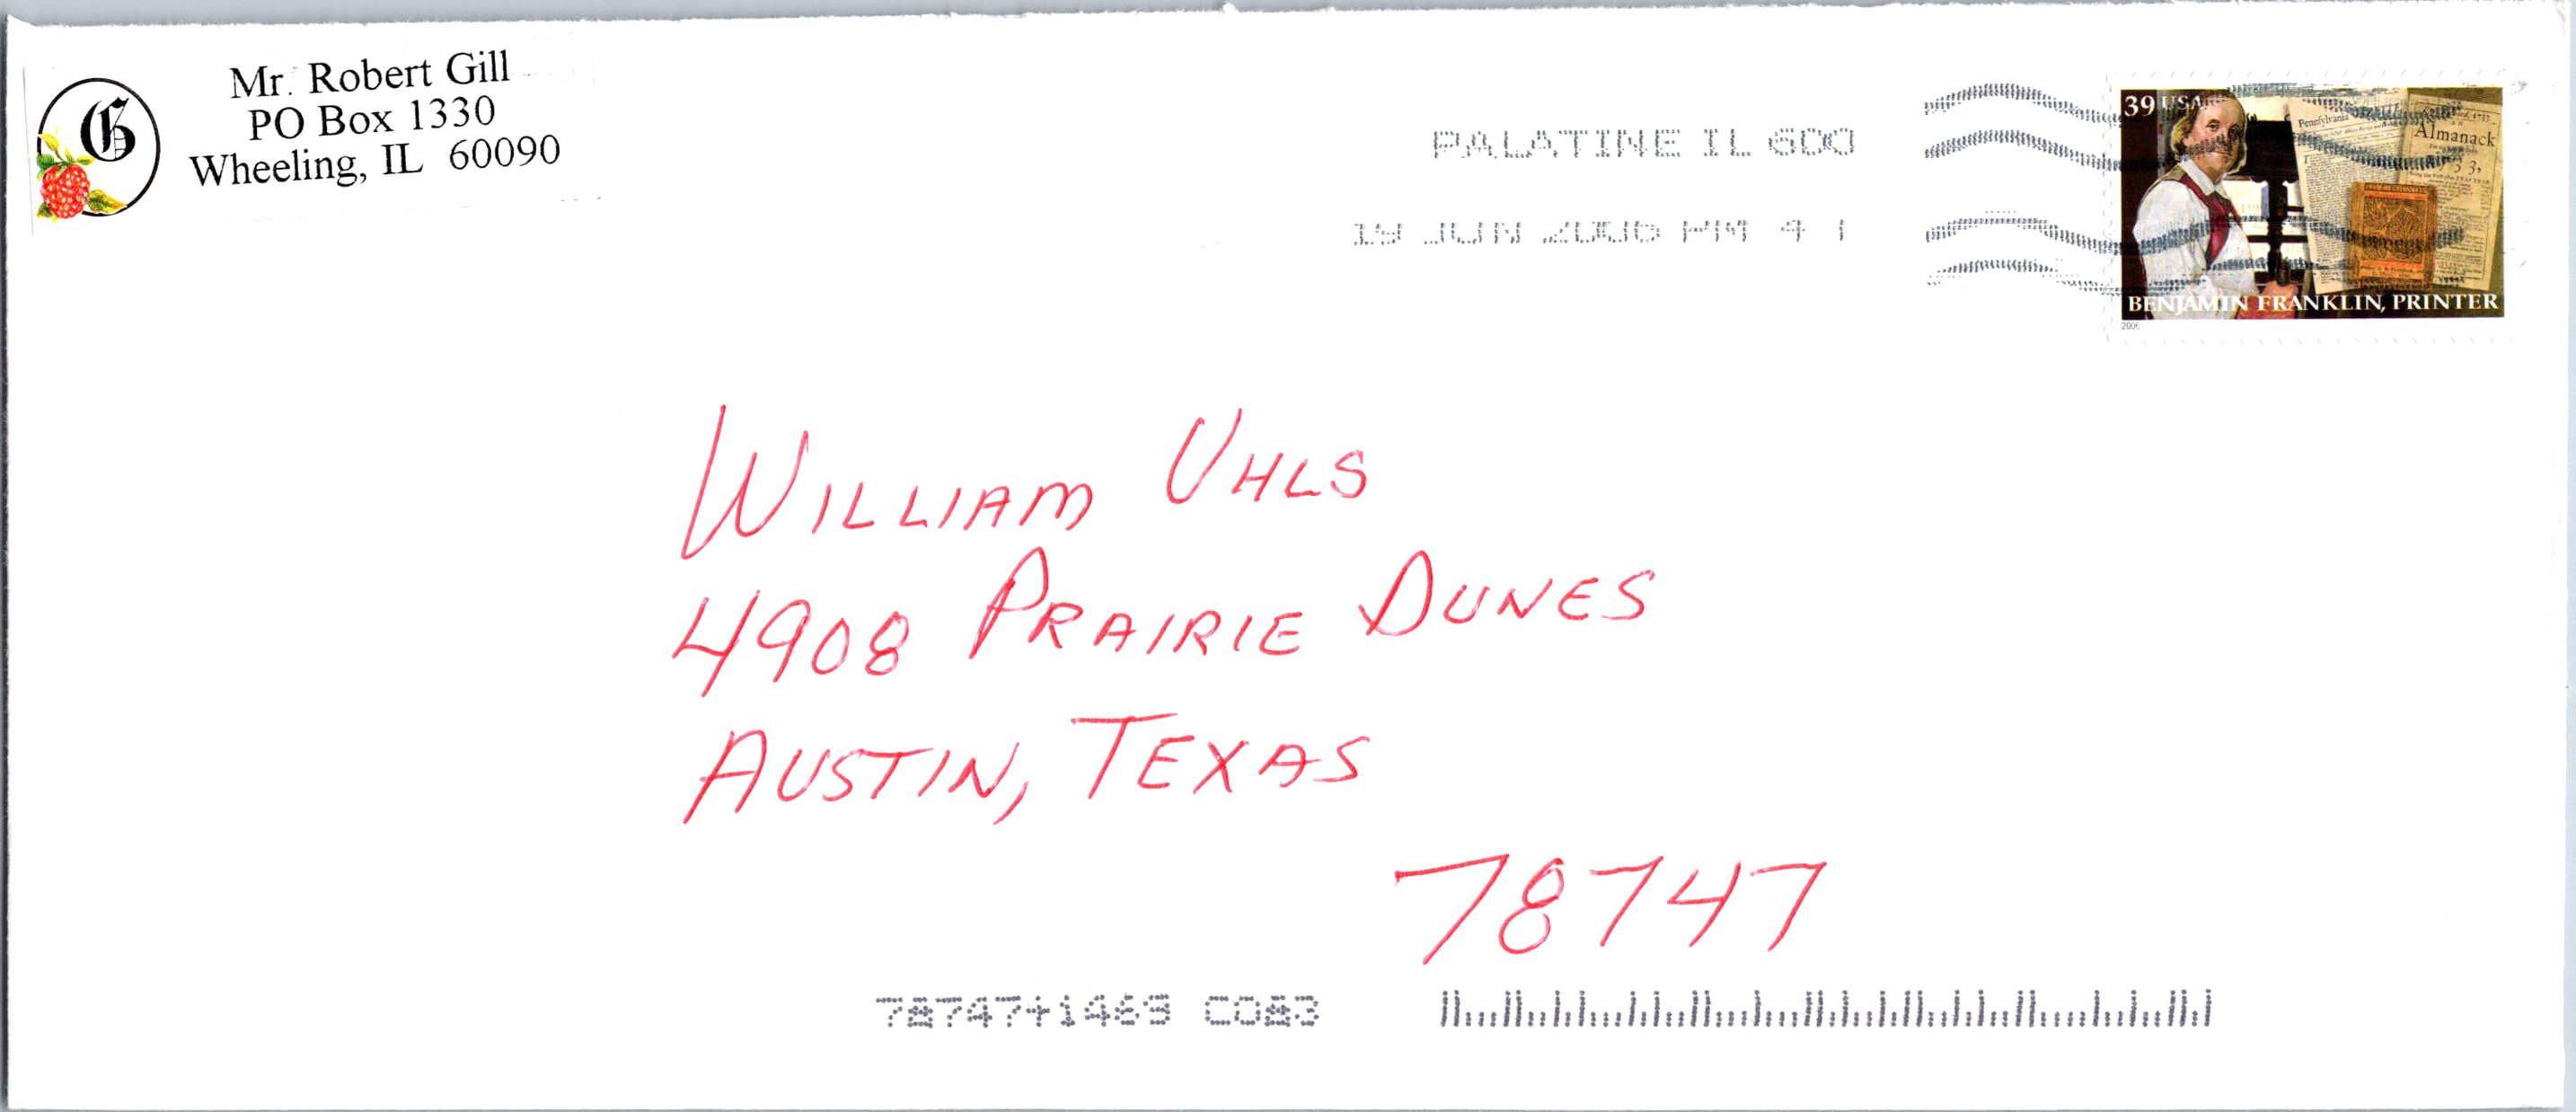 G
Mr. Robert Gill
PO Box 1330
Wheeling, IL 60090
PALATINE IL 600
19 JUN 2006 PM 4 1
39 USA
Pennsylvania
Almanack
BENJAMIN FRANKLIN, PRINTER
2006
WILLIAM UHLS
4908 PRAIRIE DUNES
AUSTIN, TEXAS
78747
78747+1469 C083